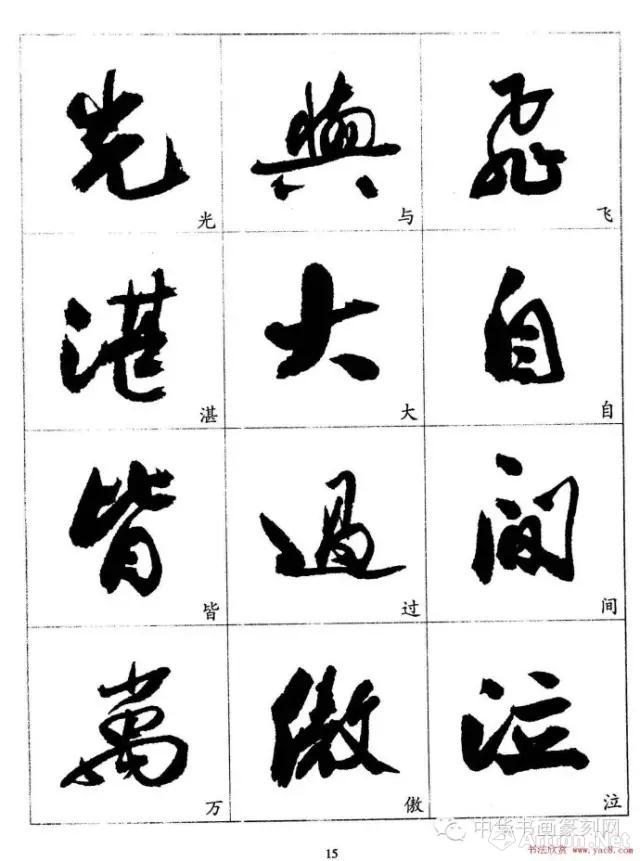 光 與 飛
光 与 飞
湛 大 自
湛 大 自
皆 過 间
皆 过 间
萬 傲 泣
万 傲 泣
中华书画篆刻网
Artron.Net
15
书法欣赏 www.yac8.com